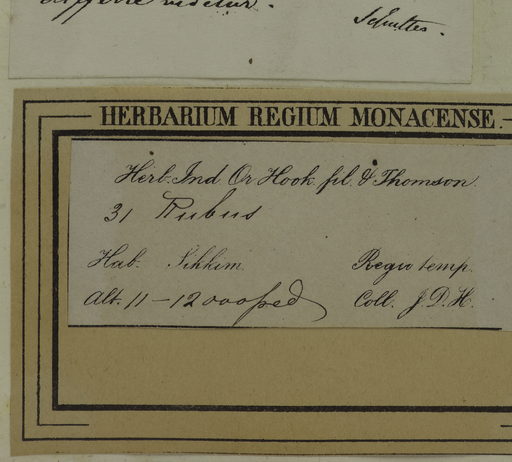 differre videtur.
Schultes.
HERBARIUM REGIUM MONACENSE.
Herb. Ind. Or. Hook. fil. & Thomson.
31 Rubus
Hab. Sikkim.
Regio temp.
Alt. 11-12000 ped
Coll. J. D. H.